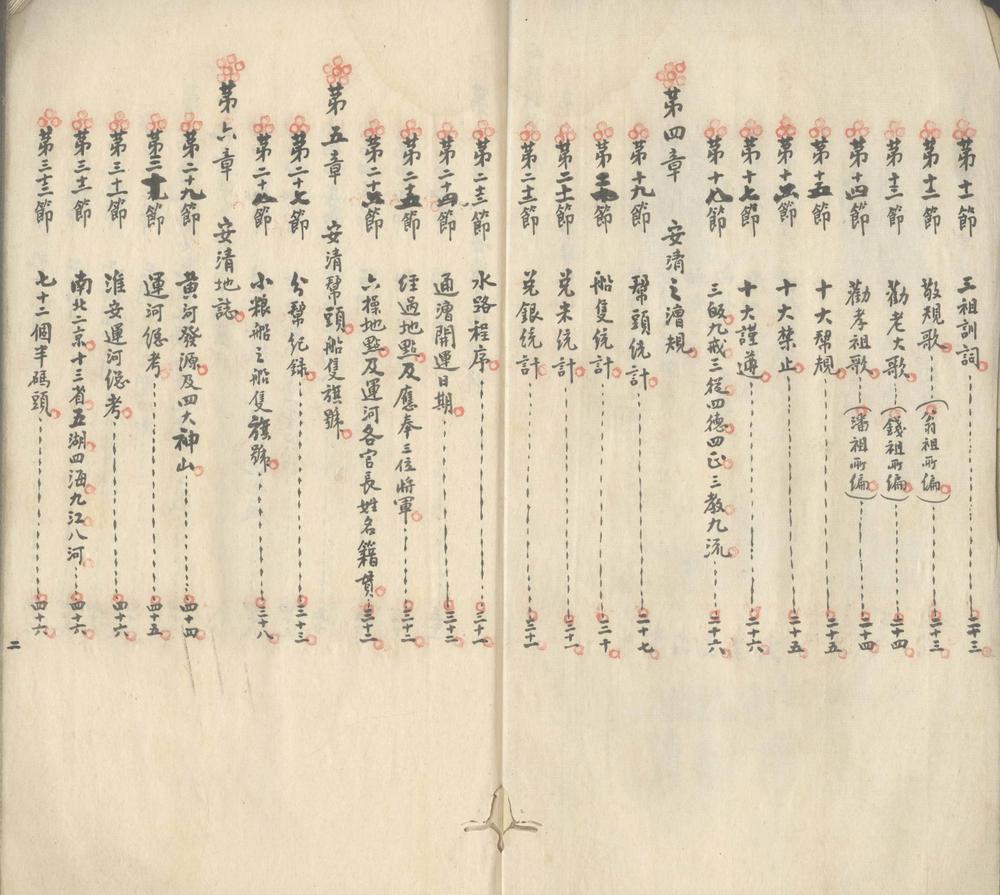 第十一節 三祖訓詞 二十三
第十二節 敬規歌(翁祖所編) 二十三
第十三節 勸老大歌(錢祖所編) 二十四
第十四節 勸孝祖歌(潘祖所編) 二十四
第十五節 十大幫規 二十五
第十六節 十大禁止 二十五
第十七節 十大謹遵 二十六
第十八節 三皈九戒三從四德四正三教九流 二十六
第四章 安清之漕規
第十九節 幫頭統計 二十七
第二十節 船隻統計 三十
第二十一節 兌米統計 三十一
第二十二節 兌銀統計 三十一
第二十三節 水路程序 三十一
第二十四節 通漕開運日期 三十二
第二十五節 經過地點及應奉三位將軍 三十二
第二十六節 六操地點及運河各官長姓名籍貫 三十三
第五章 安清幫頭船隻旗號
第二十七節 分幫紀錄 三十三
第二十八節 小粮船之船隻旗號 三十八
第六章 安清地誌
第二十九節 黃河發源及四大神山 四十四
第三十節 運河總考 四十五
第三十一節 淮安運河總考 四十六
第三十二節 南北二京十三省五湖四海九江八河 四十六
第三十三節 七十二個半碼頭 四十六
二